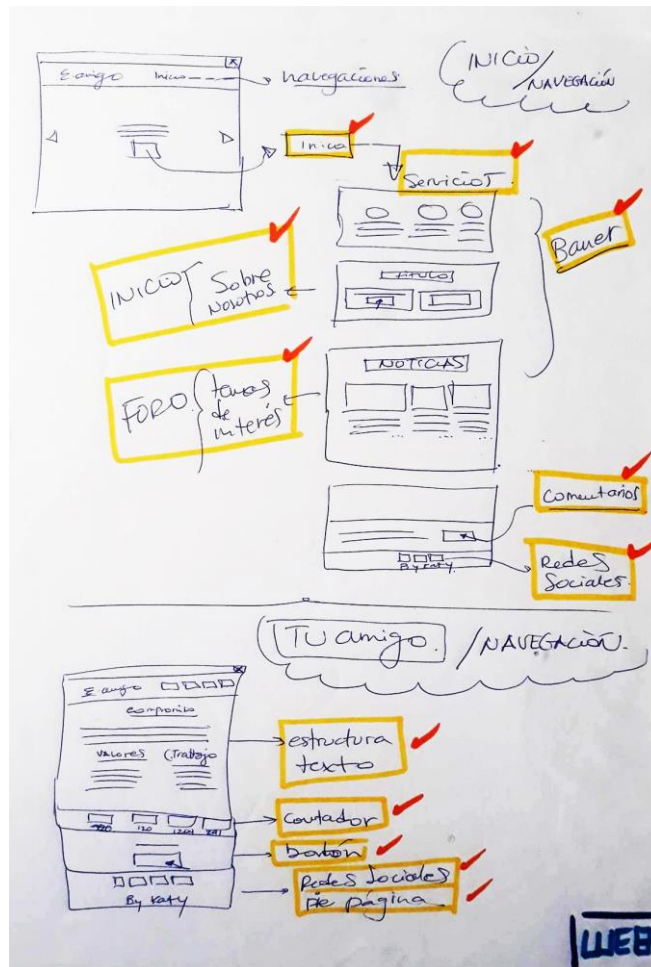 E-amigo Inicio
navegaciones
INICIO / NAVEGACIÓN
Inicio
Servicios
Baner
INICIO
Sobre
Nosotros
TITULO
FORO
temas
de
interés
NOTICIAS
Comentarios
Redes
Sociales
By Katy
TU amigo. / NAVEGACIÓN.
E-amigo
compromiso
valores C.Trabajo
estructura
texto
120
contador
botón
Redes Sociales
Pie página
By Katy
WEB